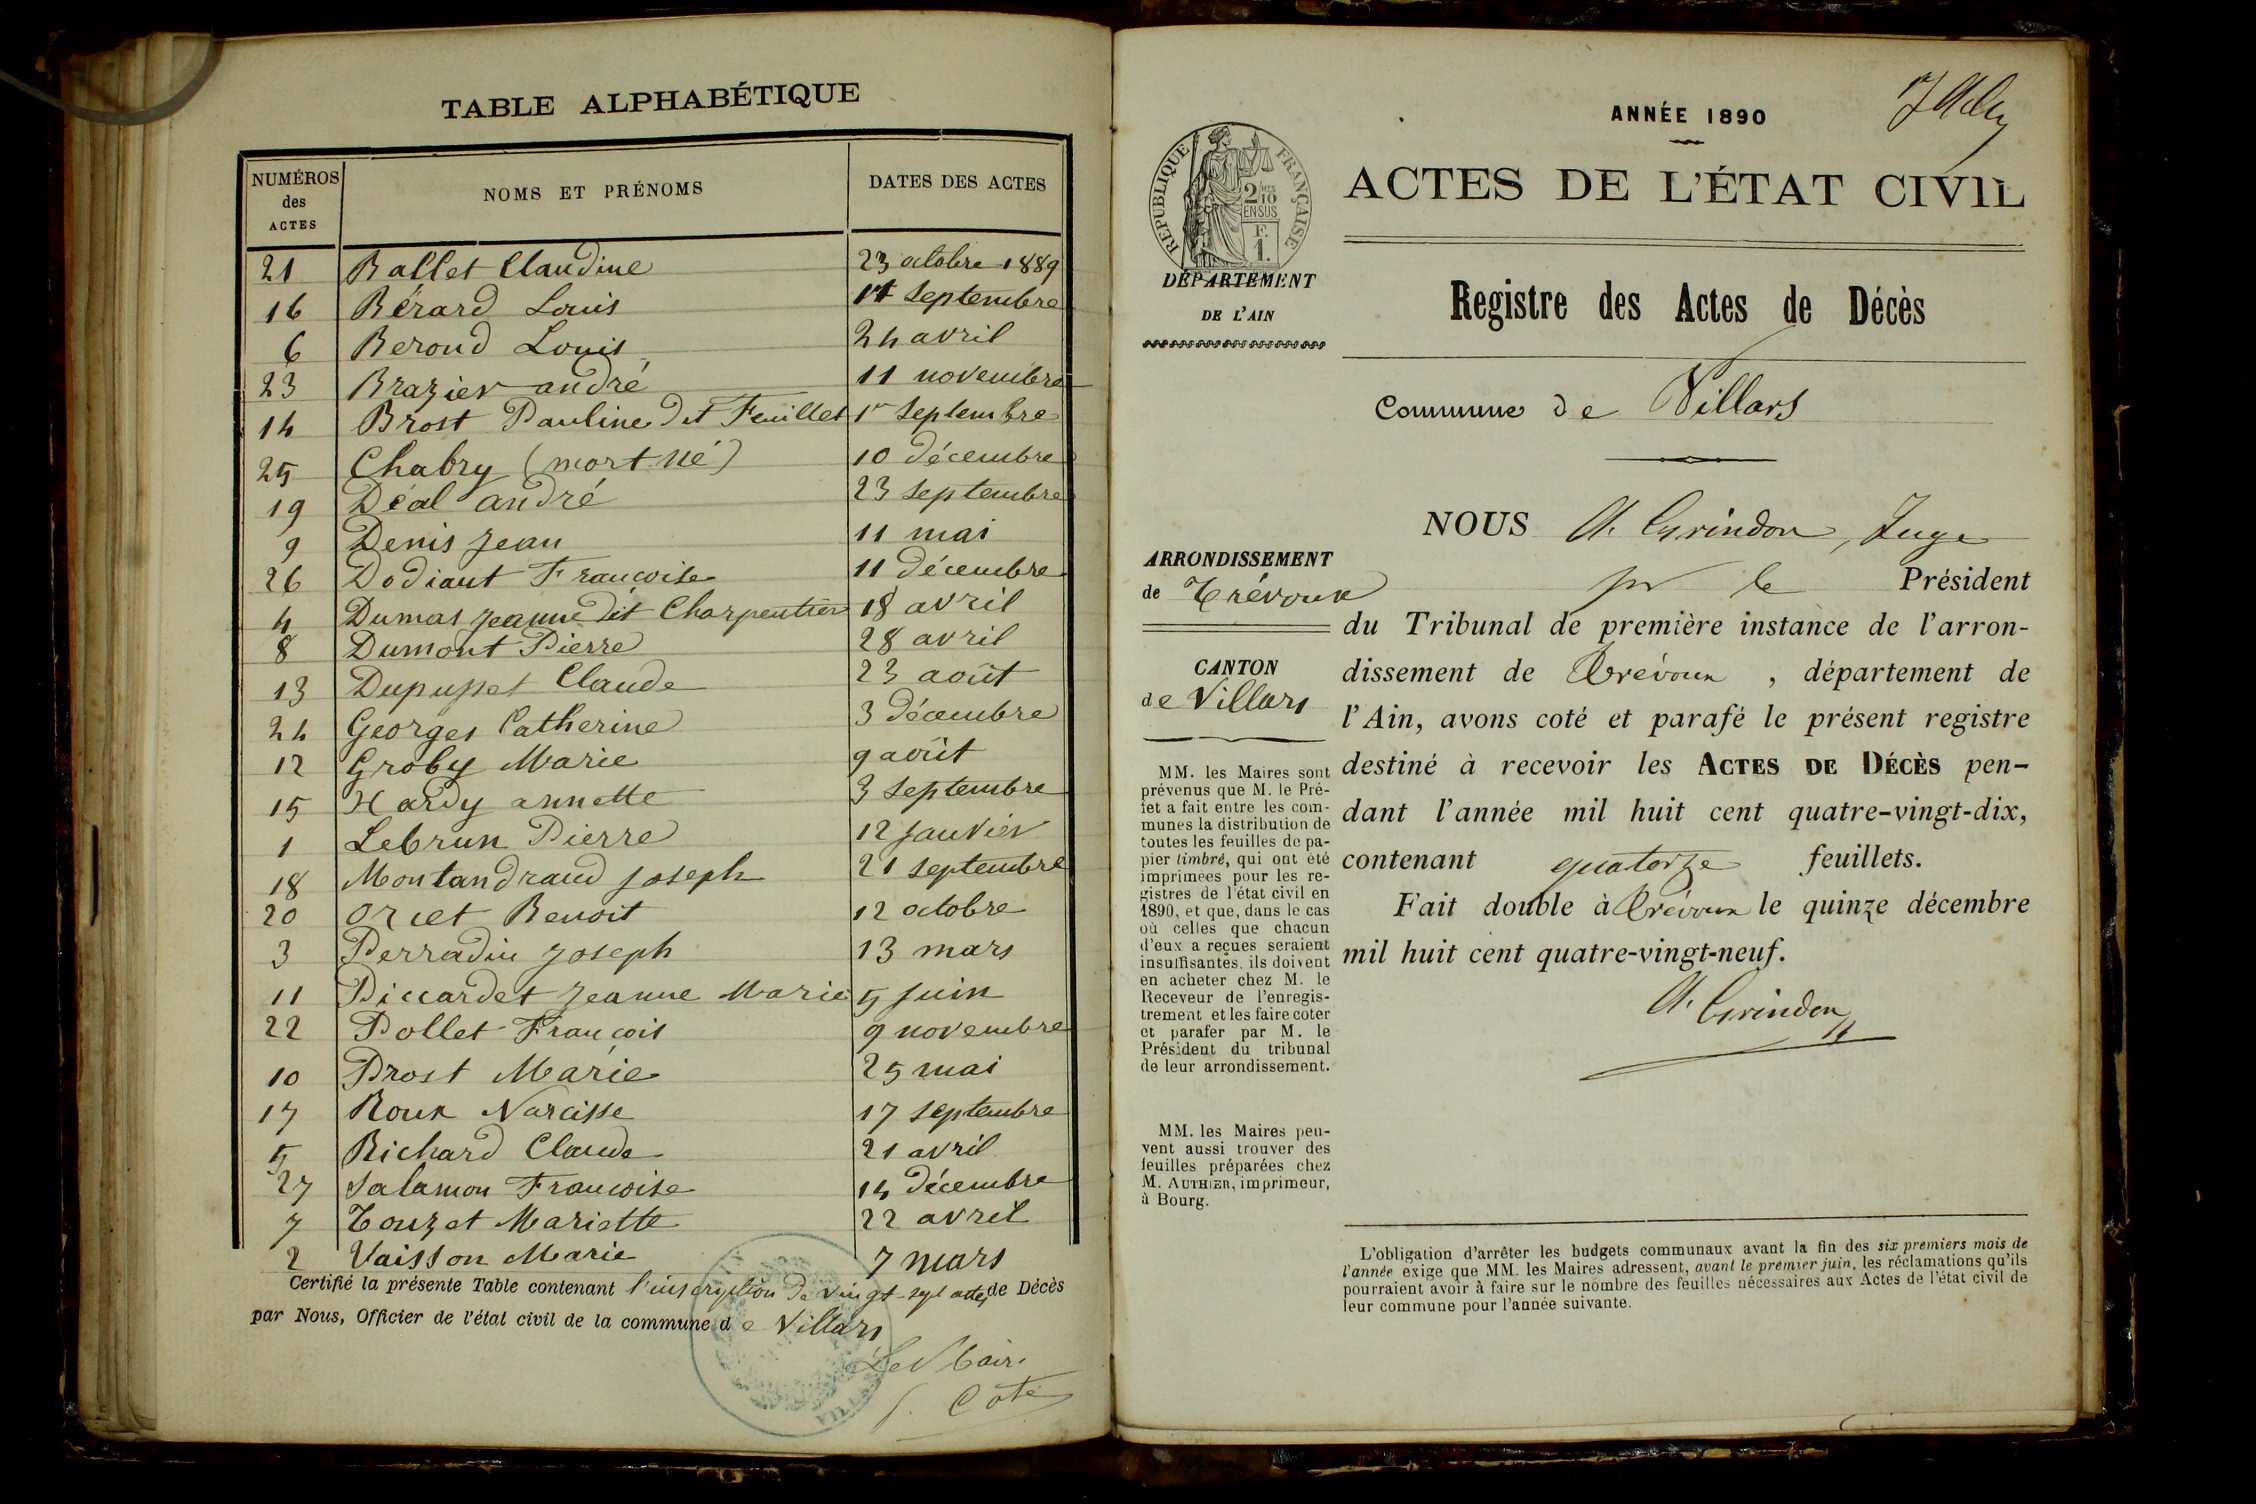 TABLE ALPHABÉTIQUE
NUMÉROS des ACTES NOMS ET PRÉNOMS DATES DES ACTES
21 Ballet Claudine 23 octobre 1889
16 Bérard Louis 14 septembre
6 Beroud Louis 24 avril
23 Brazier andré 11 novembre
14 Brost Pauline dit Feuillet 1er septembre
25 Chabry (mort né) 10 décembre
19 Déal andré 23 septembre
9 Denis Jean 11 mai
26 Dodiaut Françoise 11 décembre
4 Dumas Jeanne dit Charpentier 18 avril
8 Dumont Pierre 28 avril
13 Dupupet Claude 23 août
24 Georges Catherine 3 décembre
12 Groby Marie 9 août
15 Hardy annette 3 septembre
1 Lebrun Pierre 12 janvier
18 Montandraud Joseph 21 septembre
20 Orcet Benoit 12 octobre
3 Perradin Joseph 13 mars
11 Piccardet Jeanne Marie 5 juin
22 Pollet François 9 novembre
10 Prost Marie 25 mai
17 Roux Narcisse 17 septembre
5 Richard Claude 21 avril
27 Salamon Françoise 14 décembre
7 Touzet Mariette 22 avril
2 Vaisson Marie 7 mars
Certifié la présente Table contenant l'inscription de vingt-sept actes de Décès
par Nous, Officier de l'état civil de la commune de Villars
Le Maire
Côte
ANNÉE 1890
RÉPUBLIQUE FRANÇAISE
2/10 EN SUS
F.
1.
ACTES DE L'ÉTAT CIVIL
DÉPARTEMENT
DE L'AIN
Registre des Actes de Décès
Commune de Villars
NOUS A. Grindon, Juge
ARRONDISSEMENT
de Trévoux
pr le Président
du Tribunal de première instance de l'arron-
dissement de Trévoux, département de
l'Ain, avons coté et parafé le présent registre
destiné à recevoir les ACTES DE DÉCÈS pen-
dant l'année mil huit cent quatre-vingt-dix,
contenant quatorze feuillets.
Fait double à Trévoux le quinze décembre
mil huit cent quatre-vingt-neuf.
A. Grindon
CANTON
de Villars
MM. les Maires sont
prévenus que M. le Pré-
fet a fait entre les com-
munes la distribution de
toutes les feuilles de pa-
pier timbré, qui ont été
imprimées pour les re-
gistres de l'état civil en
1890, et que, dans le cas
où celles que chacun
d'eux a reçues seraient
insuffisantes, ils doivent
en acheter chez M. le
Receveur de l'enregis-
trement et les faire coter
et parafer par M. le
Président du tribunal
de leur arrondissement.
MM. les Maires peu-
vent aussi trouver des
feuilles préparées chez
M. AUTHIER, imprimeur,
à Bourg.
L'obligation d'arrêter les budgets communaux avant la fin des six premiers mois de
l'année exige que MM. les Maires adressent, avant le premier juin, les réclamations qu'ils
pourraient avoir à faire sur le nombre des feuilles nécessaires aux Actes de l'état civil de
leur commune pour l'année suivante.